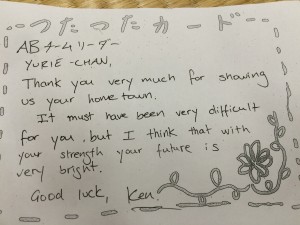 つたつたカード
ABチームリーダー
YURIE-CHAN,
Thank you very much for showing
us your home town.
It must have been very difficult
for you, but I think that with
your strength your future is
very bright.
Good luck, Ken.